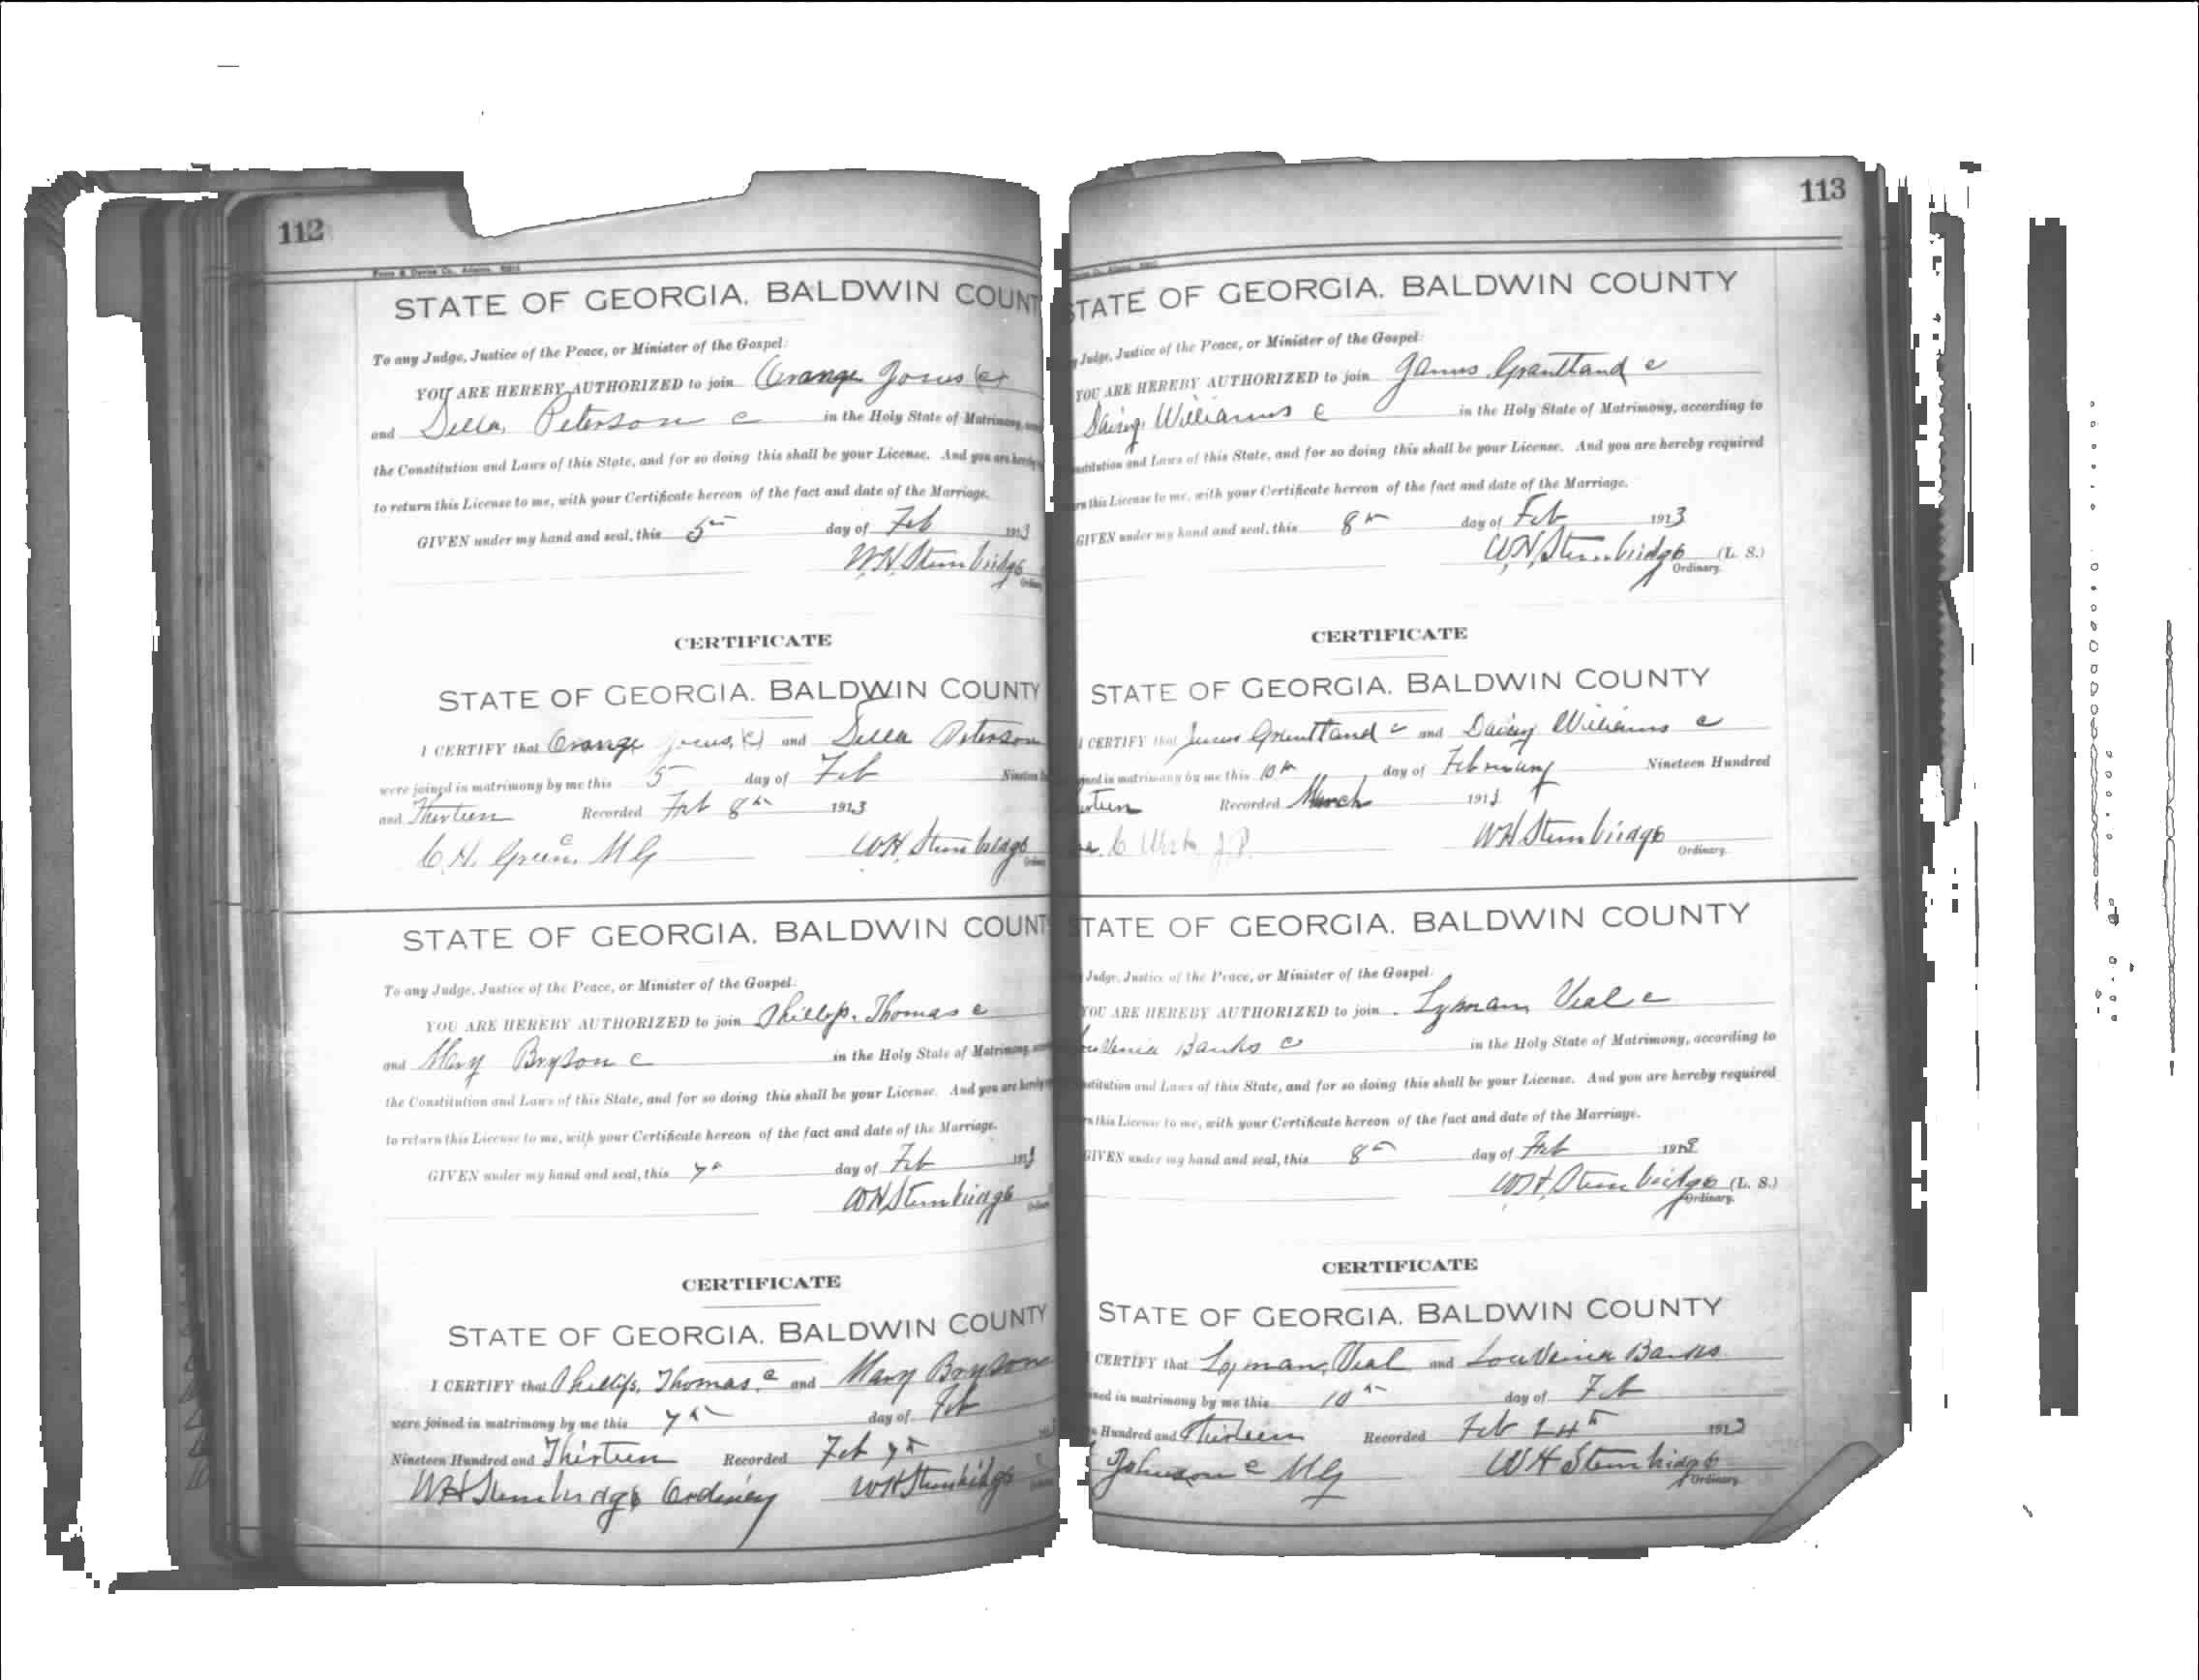 112
STATE OF GEORGIA. BALDWIN COUNT
To any Judge, Justice of the Peace, or Minister of the Gospel:
YOU ARE HEREBY AUTHORIZED to join Orange Jones (c)
and Della Peterson c in the Holy State of Matrimony,
the Constitution and Laws of this State, and for so doing this shall be your License. And you are hereby
to return this License to me, with your Certificate hereon of the fact and date of the Marriage.
GIVEN under my hand and seal, this 5th day of Feb 1913
W.H. Stembridge
Ordinary
CERTIFICATE
STATE OF GEORGIA. BALDWIN COUNTY
I CERTIFY that Orange Jones, (c) and Della Peterson
were joined in matrimony by me this 5 day of Feb Nineteen
and Thirteen Recorded Feb 8th 1913
C. H. Green, c M G W.H. Stembridge
STATE OF GEORGIA. BALDWIN COUNT
To any Judge, Justice of the Peace, or Minister of the Gospel:
YOU ARE HEREBY AUTHORIZED to join Phillip, Thomas c
and Mary Bryson c in the Holy State of Matrimony,
the Constitution and Laws of this State, and for so doing this shall be your License. And you are hereby
to return this License to me, with your Certificate hereon of the fact and date of the Marriage.
GIVEN under my hand and seal, this 7th day of Feb 1913
W H Stembridge
CERTIFICATE
STATE OF GEORGIA. BALDWIN COUNTY
I CERTIFY that Phillip, Thomas, c and Mary Bryson
were joined in matrimony by me this 7th day of Feb
Nineteen Hundred and Thirteen Recorded Feb 7th
W H Stembridge Ordinary W H Stembridge
113
STATE OF GEORGIA. BALDWIN COUNTY
Judge, Justice of the Peace, or Minister of the Gospel:
YOU ARE HEREBY AUTHORIZED to join James Granttand c
Daisy Williams c in the Holy State of Matrimony, according to
and Laws of this State, and for so doing this shall be your License. And you are hereby required
this License to me, with your Certificate hereon of the fact and date of the Marriage.
GIVEN under my hand and seal, this 8th day of Feb 1913
W.H. Stembridge (L. S.)
Ordinary.
CERTIFICATE
STATE OF GEORGIA. BALDWIN COUNTY
I CERTIFY that James Granttand c and Daisy Williams c
in matrimony by me this 10th day of February Nineteen Hundred
Recorded March 1913
J.P. W H Stembridge
Ordinary.
STATE OF GEORGIA. BALDWIN COUNTY
Judge, Justice of the Peace, or Minister of the Gospel.
YOU ARE HEREBY AUTHORIZED to join Lyman Veal c
Banks c in the Holy State of Matrimony, according to
and Laws of this State, and for so doing this shall be your License. And you are hereby required
this License to me, with your Certificate hereon of the fact and date of the Marriage.
GIVEN under my hand and seal, this 8th day of Feb 1913
W.H. Stembridge (L. S.)
Ordinary.
CERTIFICATE
STATE OF GEORGIA. BALDWIN COUNTY
I CERTIFY that Lyman, Veal and LouVenia Banks
in matrimony by me this 10th day of Feb
Hundred and Thirteen Recorded Feb 24th 1913
Johnson c M G W H Stembridge
Ordinary.